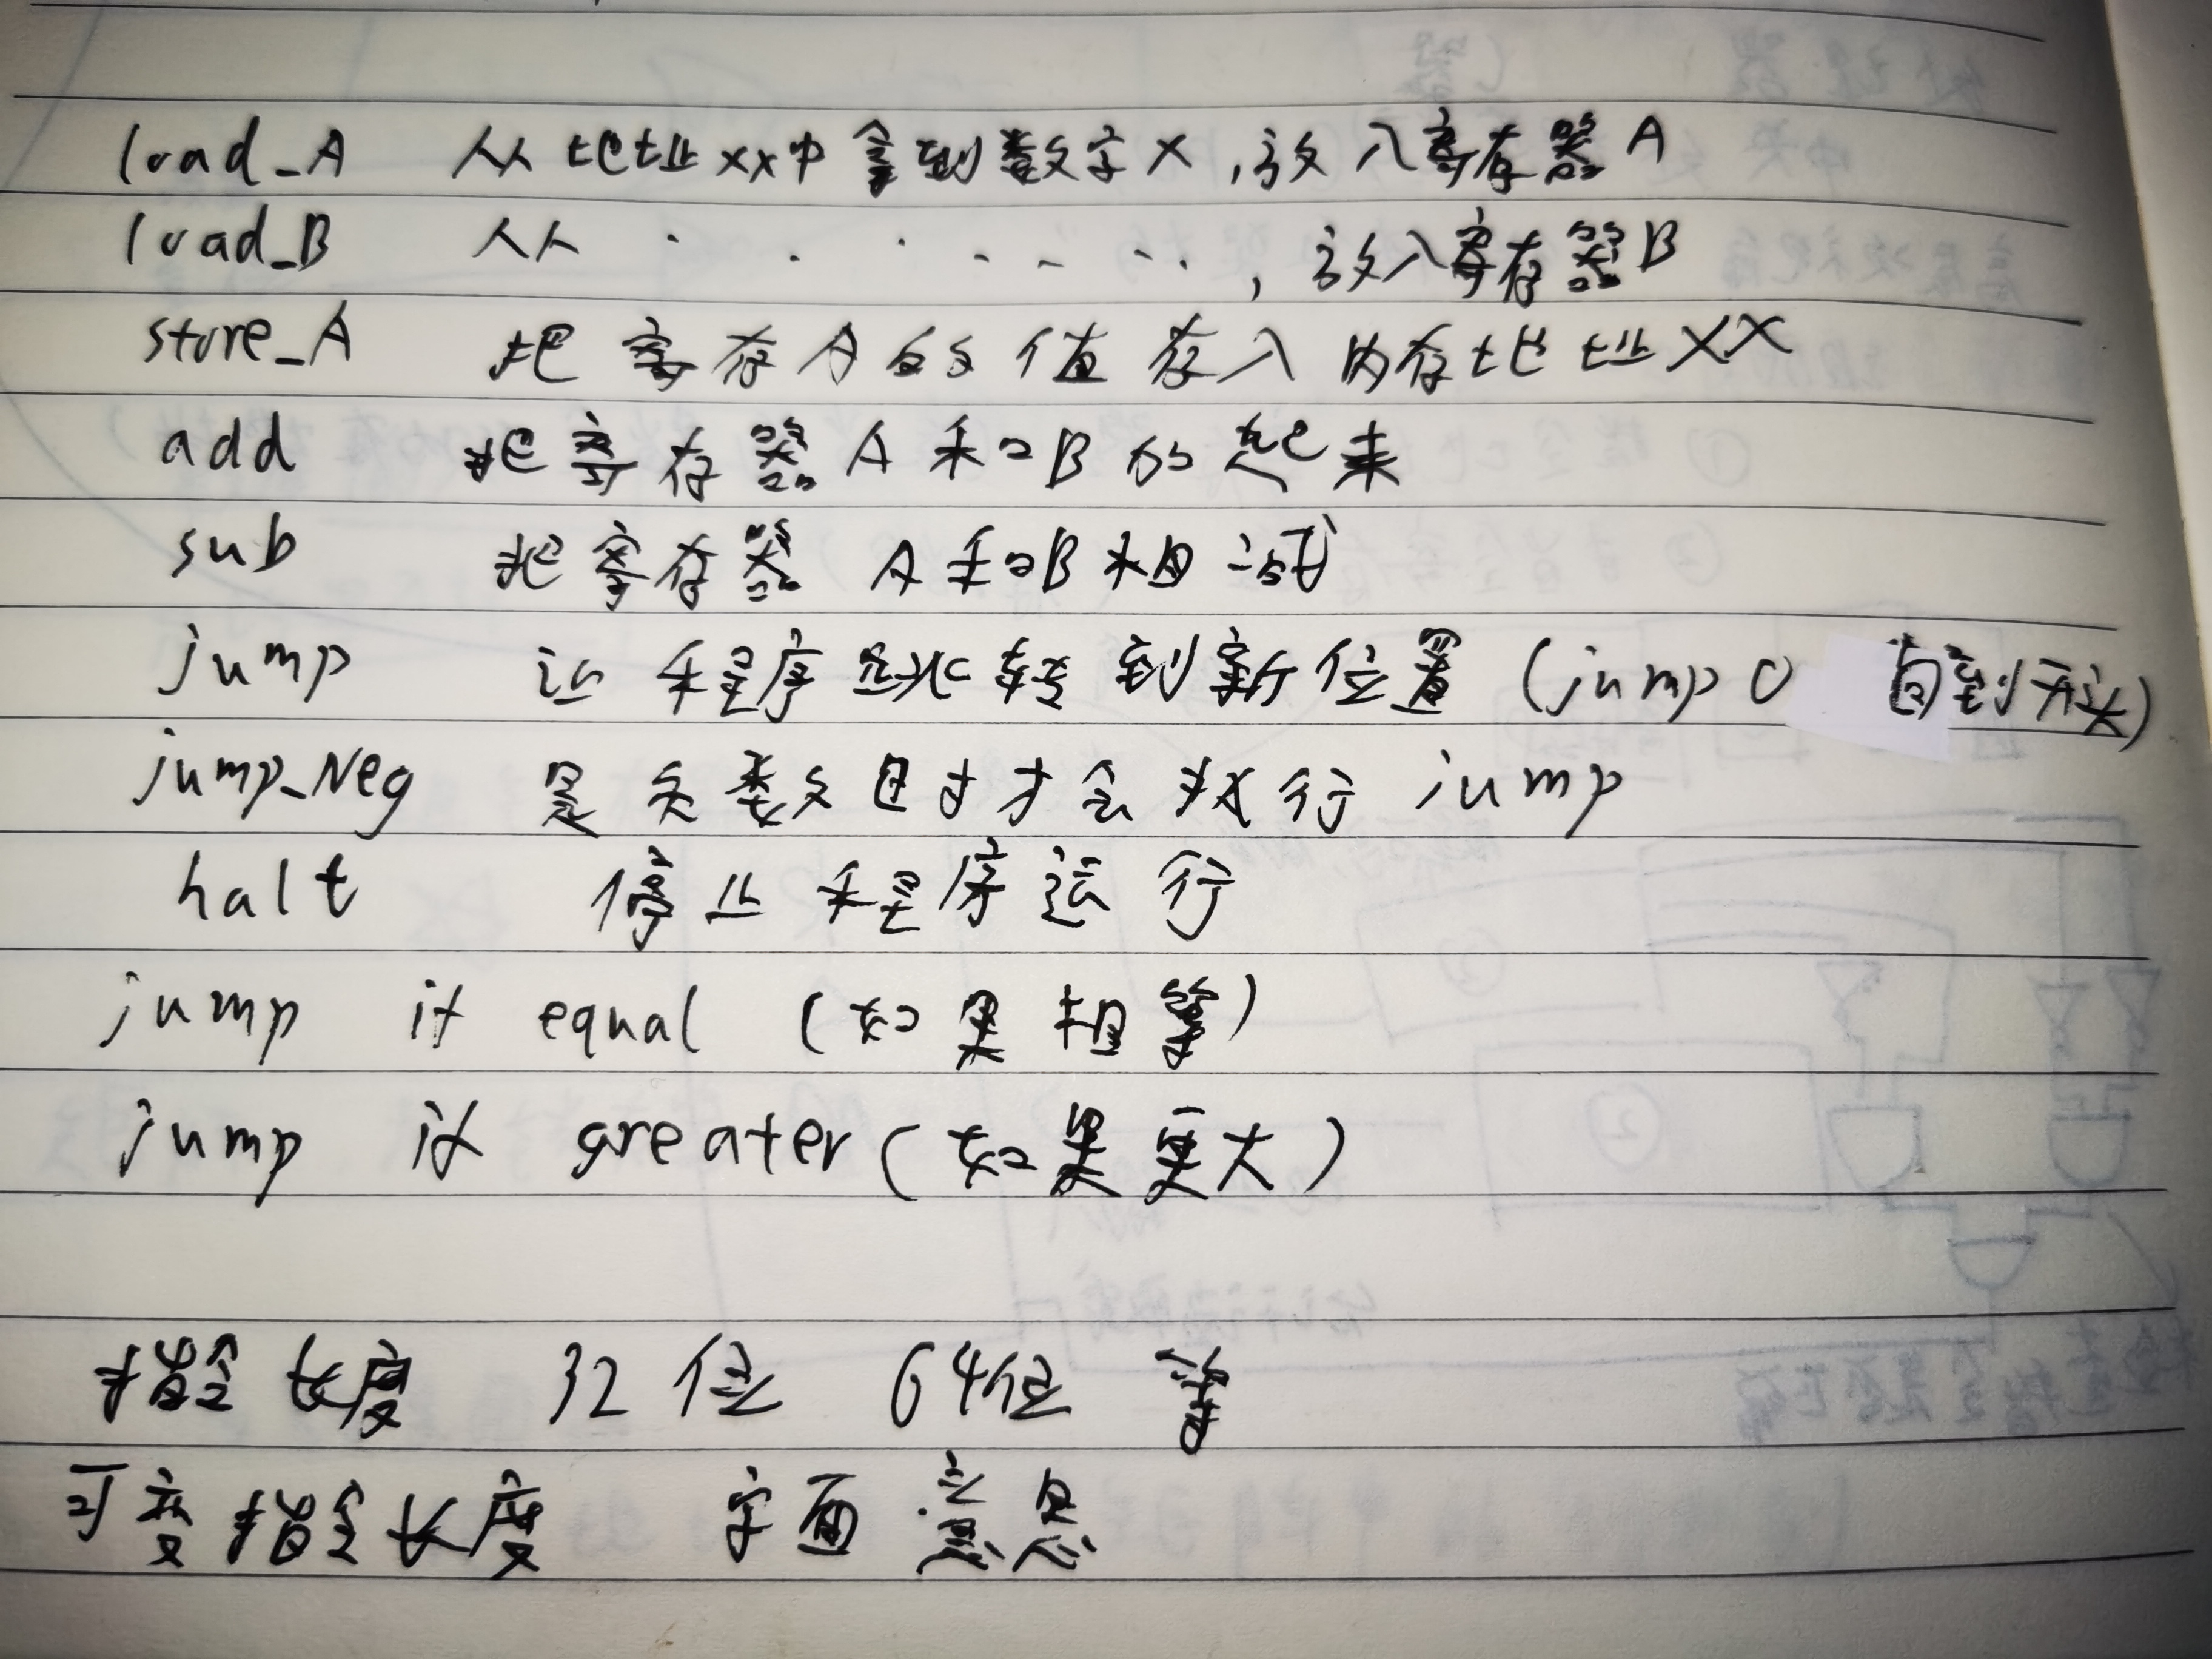 load_A 从地址xx中拿到数字x,放入寄存器A
load_B 从 . . . . - - . . . , 放入寄存器B
store_A 把寄存A的值存入内存地址XX
add 把寄存器A和B加起来
sub 把寄存器A和B相减
jump 让程序跳转到新位置 (jump 0 到开头)
jump_Neg 是负数时才会执行jump
halt 停止程序运行
jump if equal (如果相等)
jump if greater (如果更大)
指令长度 32位 64位 等
可变指令长度 字面意思